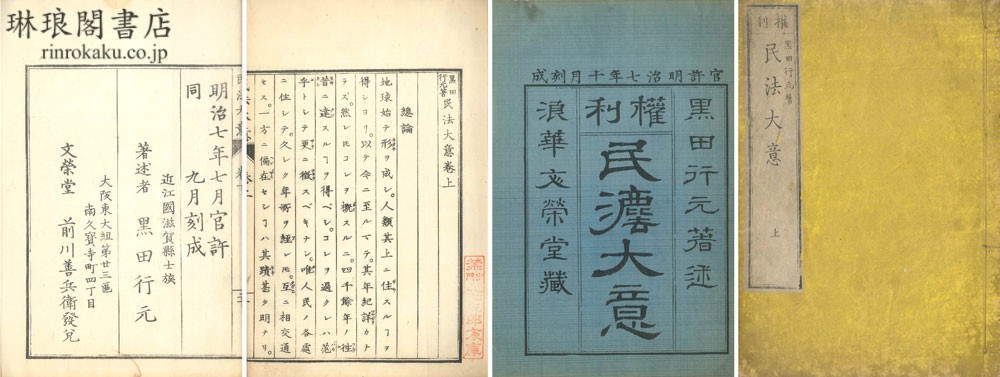 琳琅閣書店
rinrokaku.co.jp
明治七年七月官許
同 九月刻成
近江國滋賀縣士族
著述者 黒田行元
大阪東大組第廿三區
南久寶寺町四丁目
文榮堂 前川善兵衛發兌
黒田行元著 民法大意巻上
總論
地球始テ形ヲ成シ。人類其上ニ住スルヿヲ
得シヨリ。以テ今ニ至ルマテ。其年紀詳カナ
ラズ。然レ𪜈コレヲ概スルニ。四千餘年ノ徃
昔ニ達スルヿヲ得ベシ。コレヲ過クレハ。茫
乎トシテ更ニ徴スベキナシ。唯人民ノ各處
ニ住シテ。久シク年所ヲ經レ𪜈。互ニ相交通
セス。一方ニ偏在セシヿハ其蹟甚タ明ナリ。
官許明治七年十月刻成
黒田行元著述
權利
民法大意
浪華文榮堂藏
權利
黒田行元著
民法大意 上